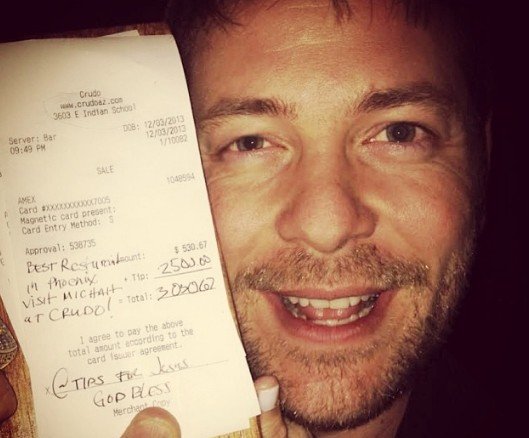 Crudo
www.crudoaz.com
3603 E Indian School
Server: Bar DOB: 12/03/2013
09:49 PM 12/03/2013
1/10082
SALE
AMEX 1048594
Card #XXXXXXXXXXX7005
Magnetic card present:
Card Entry Method: S
Approval: 538735
Amount: $ 530.67
+ Tip: 2500.00
= Total:
BEST
in PHOENIX.
VISIT
AT CRUDO!
I agree to pay the above
total amount according to the
card issuer agreement.
x @TIPS FOR JESUS
GOD BLESS
Merchant Copy